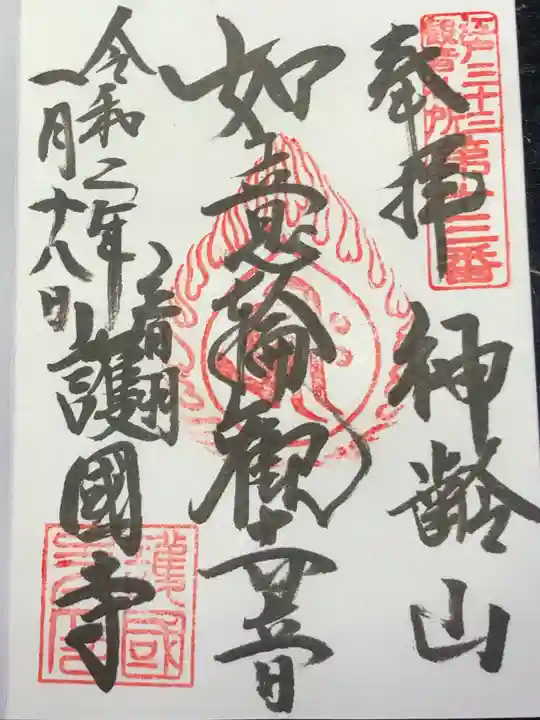 奉拝
神齢山
江戸三十三
観音札所
第十三番
如意輪観音
令和二年
一月十八日
音羽
護國寺